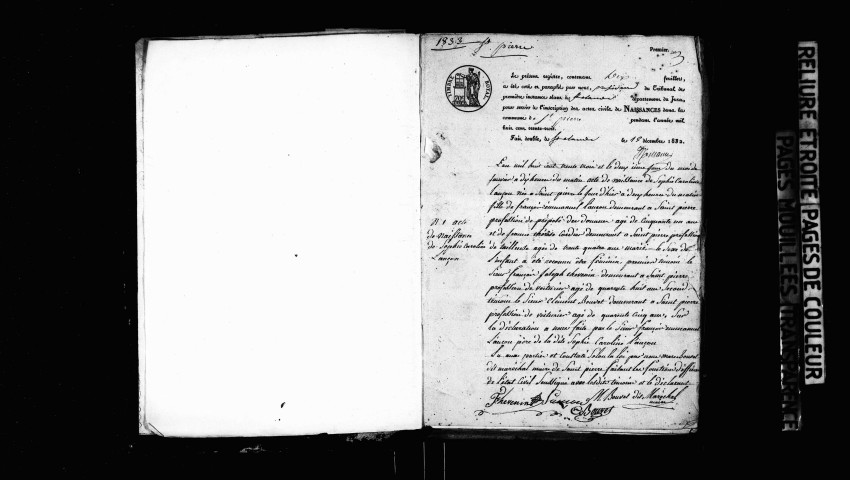 1833 St pierre
Premier.
Le présent registre, contenant dix feuillets,
a été coté et paraphé par nous, président du Tribunal de
première instance séant à St Claude département du Jura,
pour servir à l'inscription des actes civils de NAISSANCES dans la
commune de St pierre pendant l'année mil
huit cent trente-trois.
Fait double, à St Claude le 18 décembre 1832.
TIMBRE ROYAL
L'an mil huit cent trente trois et le deux ième jour du mois de
janvier à dix heures du matin acte de naissance de Sophie Caroline
Lançon née a Saint pierre le jour d'hier a deux heures du
fille de françois Emmanuel Lançon demeurant a Saint pierre
proffession de préposé des douanes agé de cinquante un ans
et de femme cordier demeurant a Saint pierre proffession
de tailleuse agée de trente quatre ans mariés le sexe de
l'enfant a été reconnu être féminin, premier témoin le
Sieur françois Joseph thevenin demeurant a Saint pierre
proffession de voiturier agé de quarente huit ans Second
témoin le Sieur Clément Bouvet demeurant a Saint pierre
proffession de voiturier agé de quarente cinq ans, Sur
la déclaration a nous faite par le Sieur françois emmanuel
Lançon père de la dite Sophie Caroline Lançon
et constaté Selon la loi par nous Bouvet
dit maréchal maire de Saint pierre faisant les fonctions d'officier
de l'état civil Soussigné avec les dits témoins et le déclarant
N. 1 acte
de naissance
de Sophie Caroline
Lançon
fthevenin Lancon M Bouvet dit Maréchal
maire
Bouvet
RELIURE ETROITE PAGES DE COULEUR
PAGES MOUILLEES TRANSPARENCE